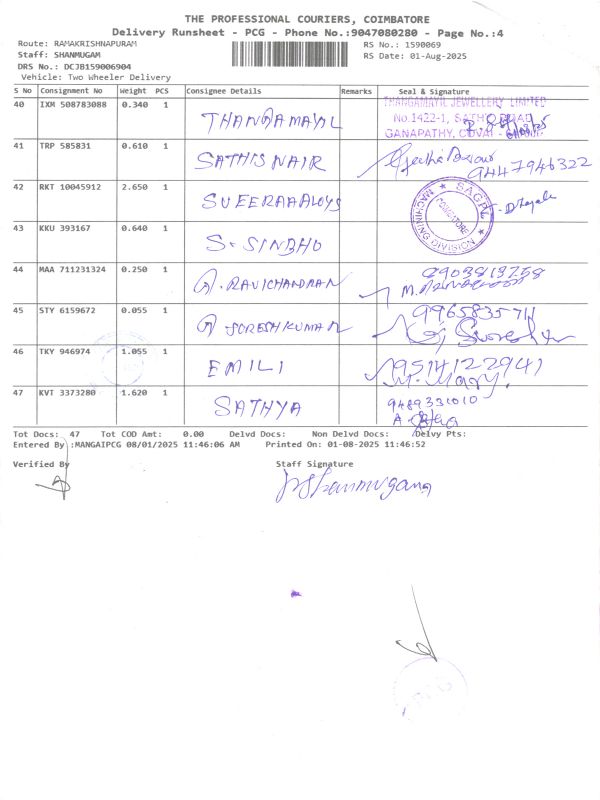 THE PROFESSIONAL COURIERS, COIMBATORE
Delivery Runsheet - PCG - Phone No.:9047080280 - Page No.:4
Route: RAMAKRISHNAPURAM RS No.: 1590069
Staff: SHANMUGAM RS Date: 01-Aug-2025
DRS No.: DCJB159006904
Vehicle: Two Wheeler Delivery
S No Consignment No Weight PCS Consignee Details Remarks Seal & Signature
40 IXM 508783088 0.340 1 THANGAMAYAL THANGAMAYIL JEWELLERY LIMITED
No.1422-1, SATHY ROAD
GANAPATHY, COVAI
41 TRP 585831 0.610 1 SATHISNAIR 9447946322
42 RKT 10045912 2.650 1 SUEERAAALOYS SAGPL COIMBATORE MACHINING DIVISION
43 KKU 393167 0.640 1 S. SINDHU
44 MAA 711231324 0.250 1 RAVICHANDRAN 8903813758
45 STY 6159672 0.055 1 SURESHKUMAR
46 TKY 946974 1.055 1 EMILI 9514122941
M. Mary
47 KVT 3373280 1.620 1 SATHYA 9489331010
Tot Docs: 47 Tot COD Amt: 0.00 Delvd Docs: Non Delvd Docs: Delvy Pts:
Entered By :MANGAIPCG 08/01/2025 11:46:06 AM Printed On: 01-08-2025 11:46:52
Verified By Staff Signature
P Shanmugam